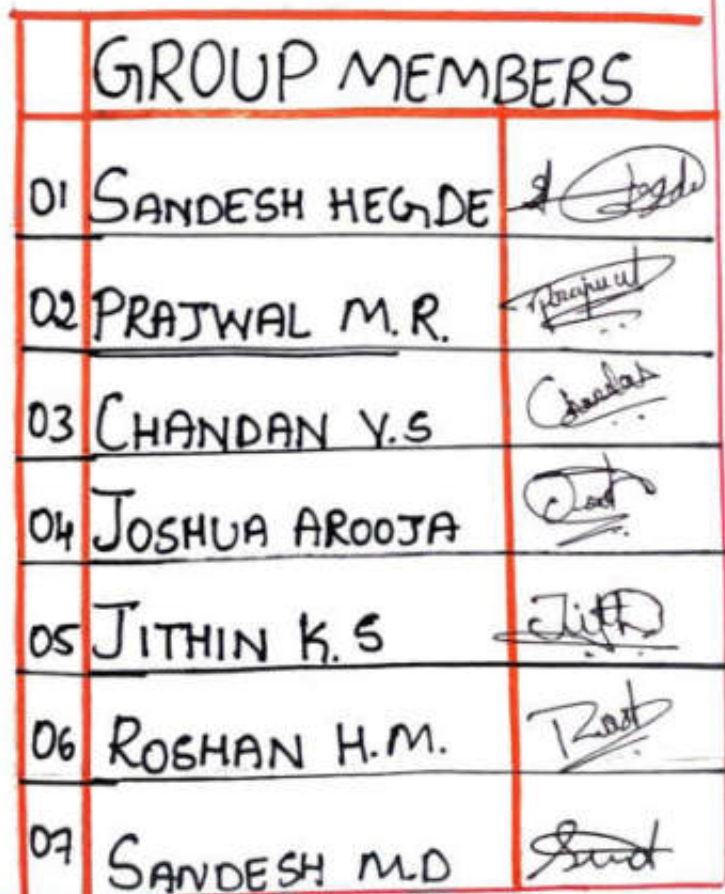 GROUP MEMBERS
01 SANDESH HEGDE
02 PRAJWAL M.R.
03 CHANDAN Y.S
04 JOSHUA AROOJA
05 JITHIN K.S
06 ROSHAN H.M.
07 SANDESH M.D